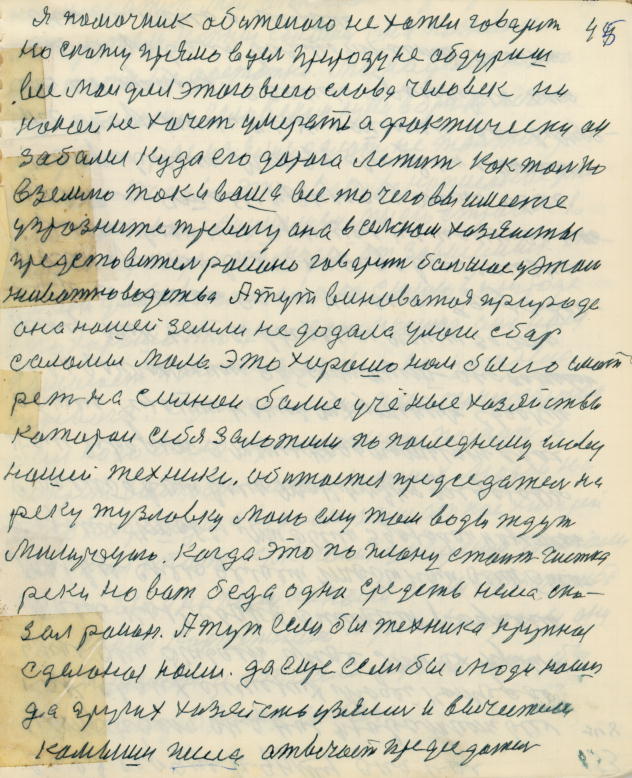 Я помочник обиженого не хотел говарит 45
но скожу прямо вцел природу не обдуриш
все мои для этого всего слова человек ни
какой не хочет умерат а фактически он
забалел куда его дорога летит как толко
в землю так и ваша все то чего вы имеете
упразните тревогу она в сельском хозяистви
представител раиано говарит балшое у этом
живатноводства А тут виноватоя природа
она нашей земли не додала улаги сбар
саломы мала это хорошо нам было смот
рет на силнои балие учёные хозяйства
которои себя заложили по последнему слову
нашей техники. обитается председател на
реку тузловку мало ему там воды ждут
милиучуто. Когда это по плану стоит чистка
реки но вот беда одна средств нема ска-
зал раиан. А тут если бы техника крупноя
сделаноя нами. да еще если бы люди наши
да других хозяйств узяли и вичистили
камыши пиша атвичает председател